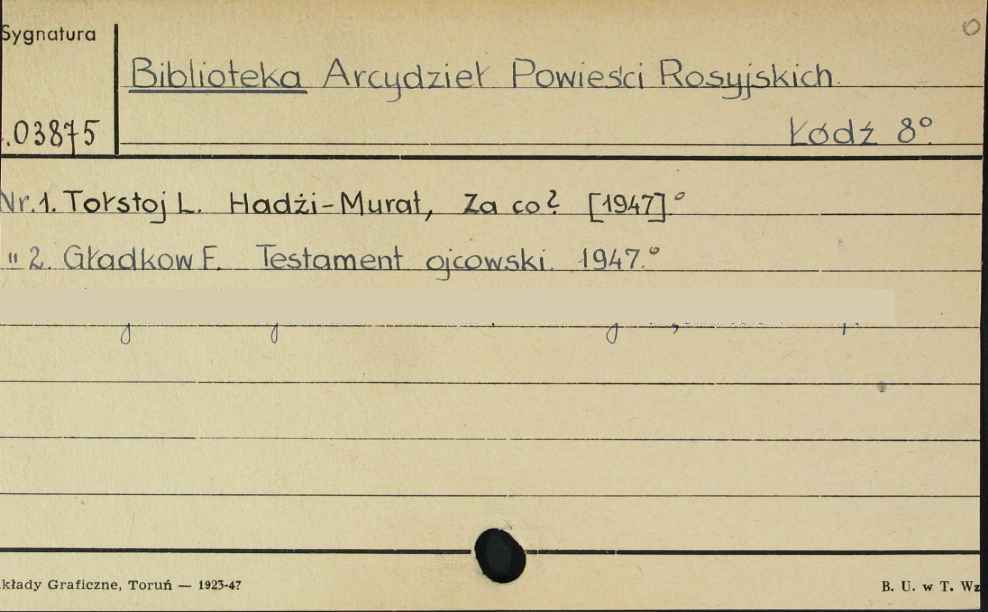 Sygnatura
Biblioteka Arcydzieł Powieści Rosyjskich.
.03875
Łódź 8º.
Nr.1. Tołstoj L. Hadżi-Murat, Za co? [1947].º
" 2. Gładkow F. Testament ojcowski. 1947.º
kłady Graficzne, Toruń — 1923-47
B. U. w T. Wz